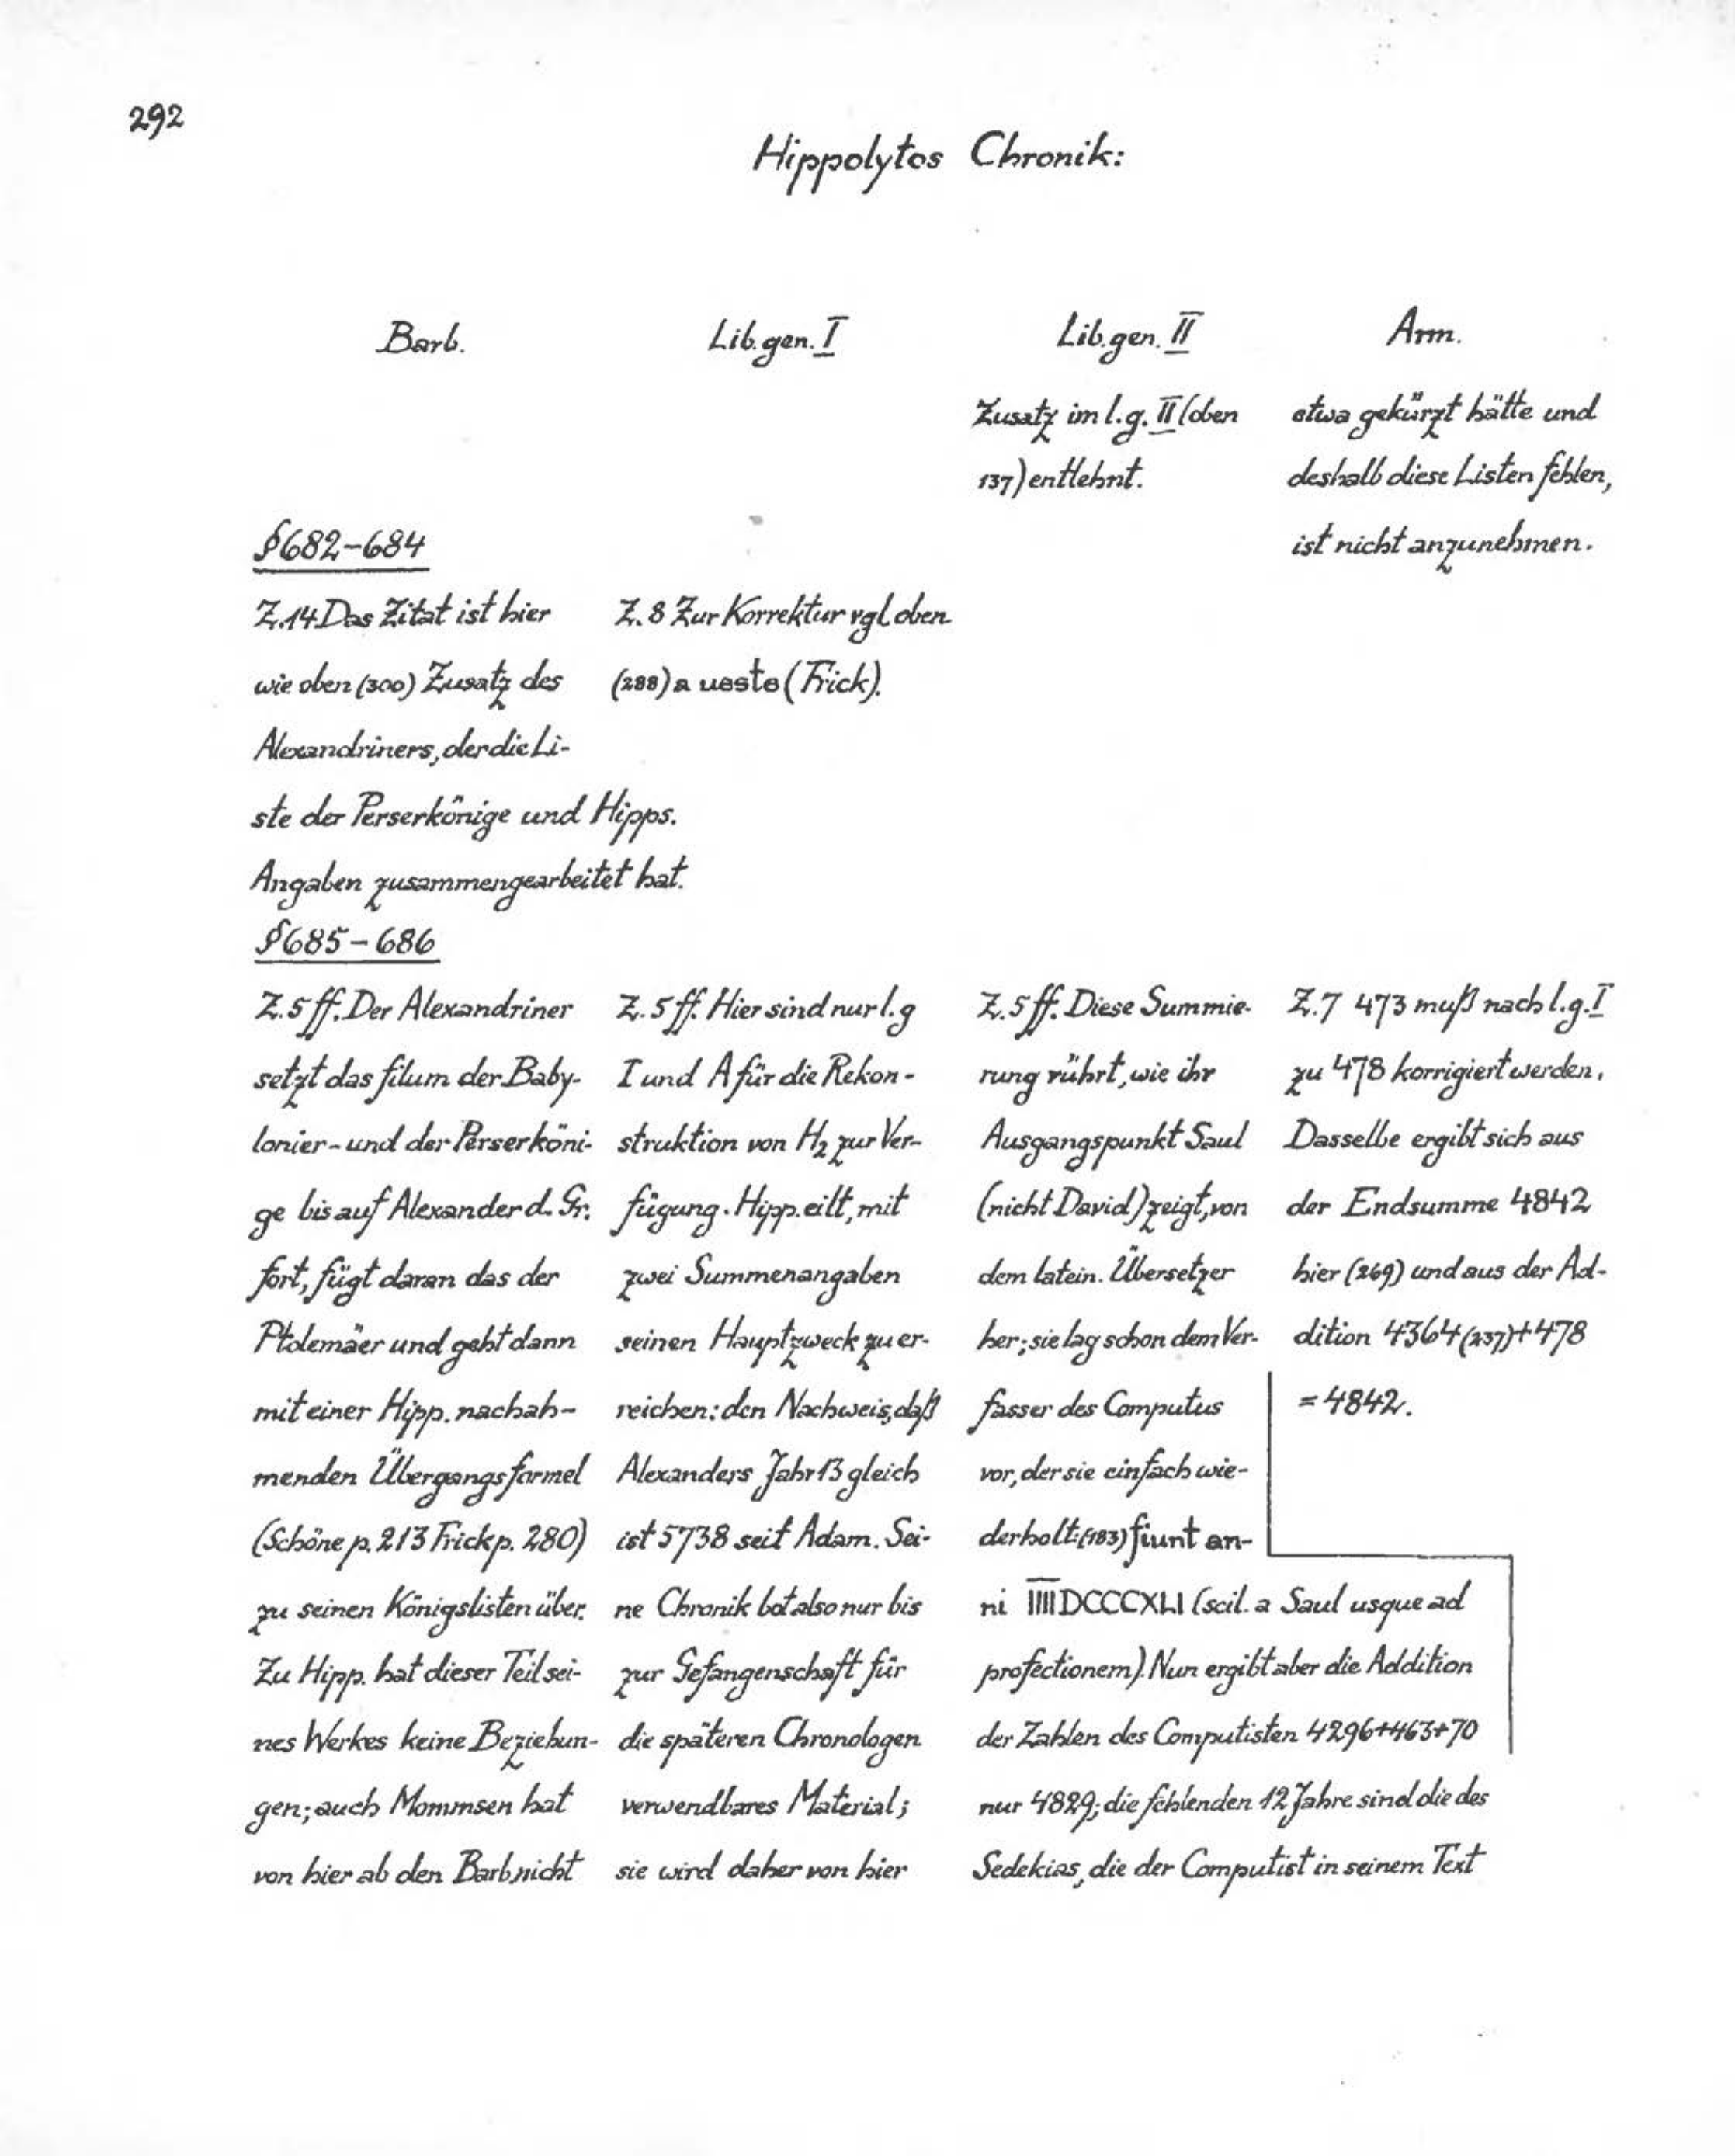 292
Hippolytos Chronik:
Barb.
Lib. gen. I
Lib. gen. II
Arm.
Zusatz im l. g. II (oben
137) entlehnt.
etwa gekürzt hätte und
deshalb diese Listen fehlen,
ist nicht anzunehmen.
§ 682-684
Z. 14 Das Zitat ist hier
wie oben (300) Zusatz des
Alexandriners, der die Li-
ste der Perserkönige und Hipps.
Angaben zusammengearbeitet hat.
Z. 8 Zur Korrektur vgl oben
(288) a ueste (Frick).
§ 685-686
Z. 5 ff. Der Alexandriner
setzt das filum der Baby-
lonier- und der Perserköni-
ge bis auf Alexander d. Gr.
fort, fügt daran das der
Ptolemäer und geht dann
mit einer Hipp. nachah-
menden Übergangsformel
(Schöne p. 213 Frick p. 280)
zu seinen Königslisten über.
Zu Hipp. hat dieser Teil sei-
nes Werkes keine Beziehun-
gen; auch Mommsen hat
von hier ab den Barb. nicht
Z. 5 ff. Hier sind nur l. g
I und A für die Rekon-
struktion von H2 zur Ver-
fügung. Hipp. eilt, mit
zwei Summenangaben
seinen Hauptzweck zu er-
reichen: den Nachweis, daß
Alexanders Jahr 13 gleich
ist 5738 seit Adam. Sei-
ne Chronik bot also nur bis
zur Gefangenschaft für
die späteren Chronologen
verwendbares Material;
sie wird daher von hier
Z. 5 ff. Diese Summie-
rung rührt, wie ihr
Ausgangspunkt Saul
(nicht David) zeigt, von
dem latein. Übersetzer
her; sie lag schon dem Ver-
fasser des Computus
vor, der sie einfach wie-
derholt: (183) fiunt an-
ni I̅I̅I̅I̅DCCCXLI (scil. a Saul usque ad
profectionem). Nun ergibt aber die Addition
der Zahlen des Computisten 4296+463+70
nur 4829; die fehlenden 12 Jahre sind die des
Sedekias, die der Computist in seinem Text
Z. 7 473 muß nach l. g. I
zu 478 korrigiert werden.
Dasselbe ergibt sich aus
der Endsumme 4842
hier (269) und aus der Ad-
dition 4364 (237)+478
=4842.